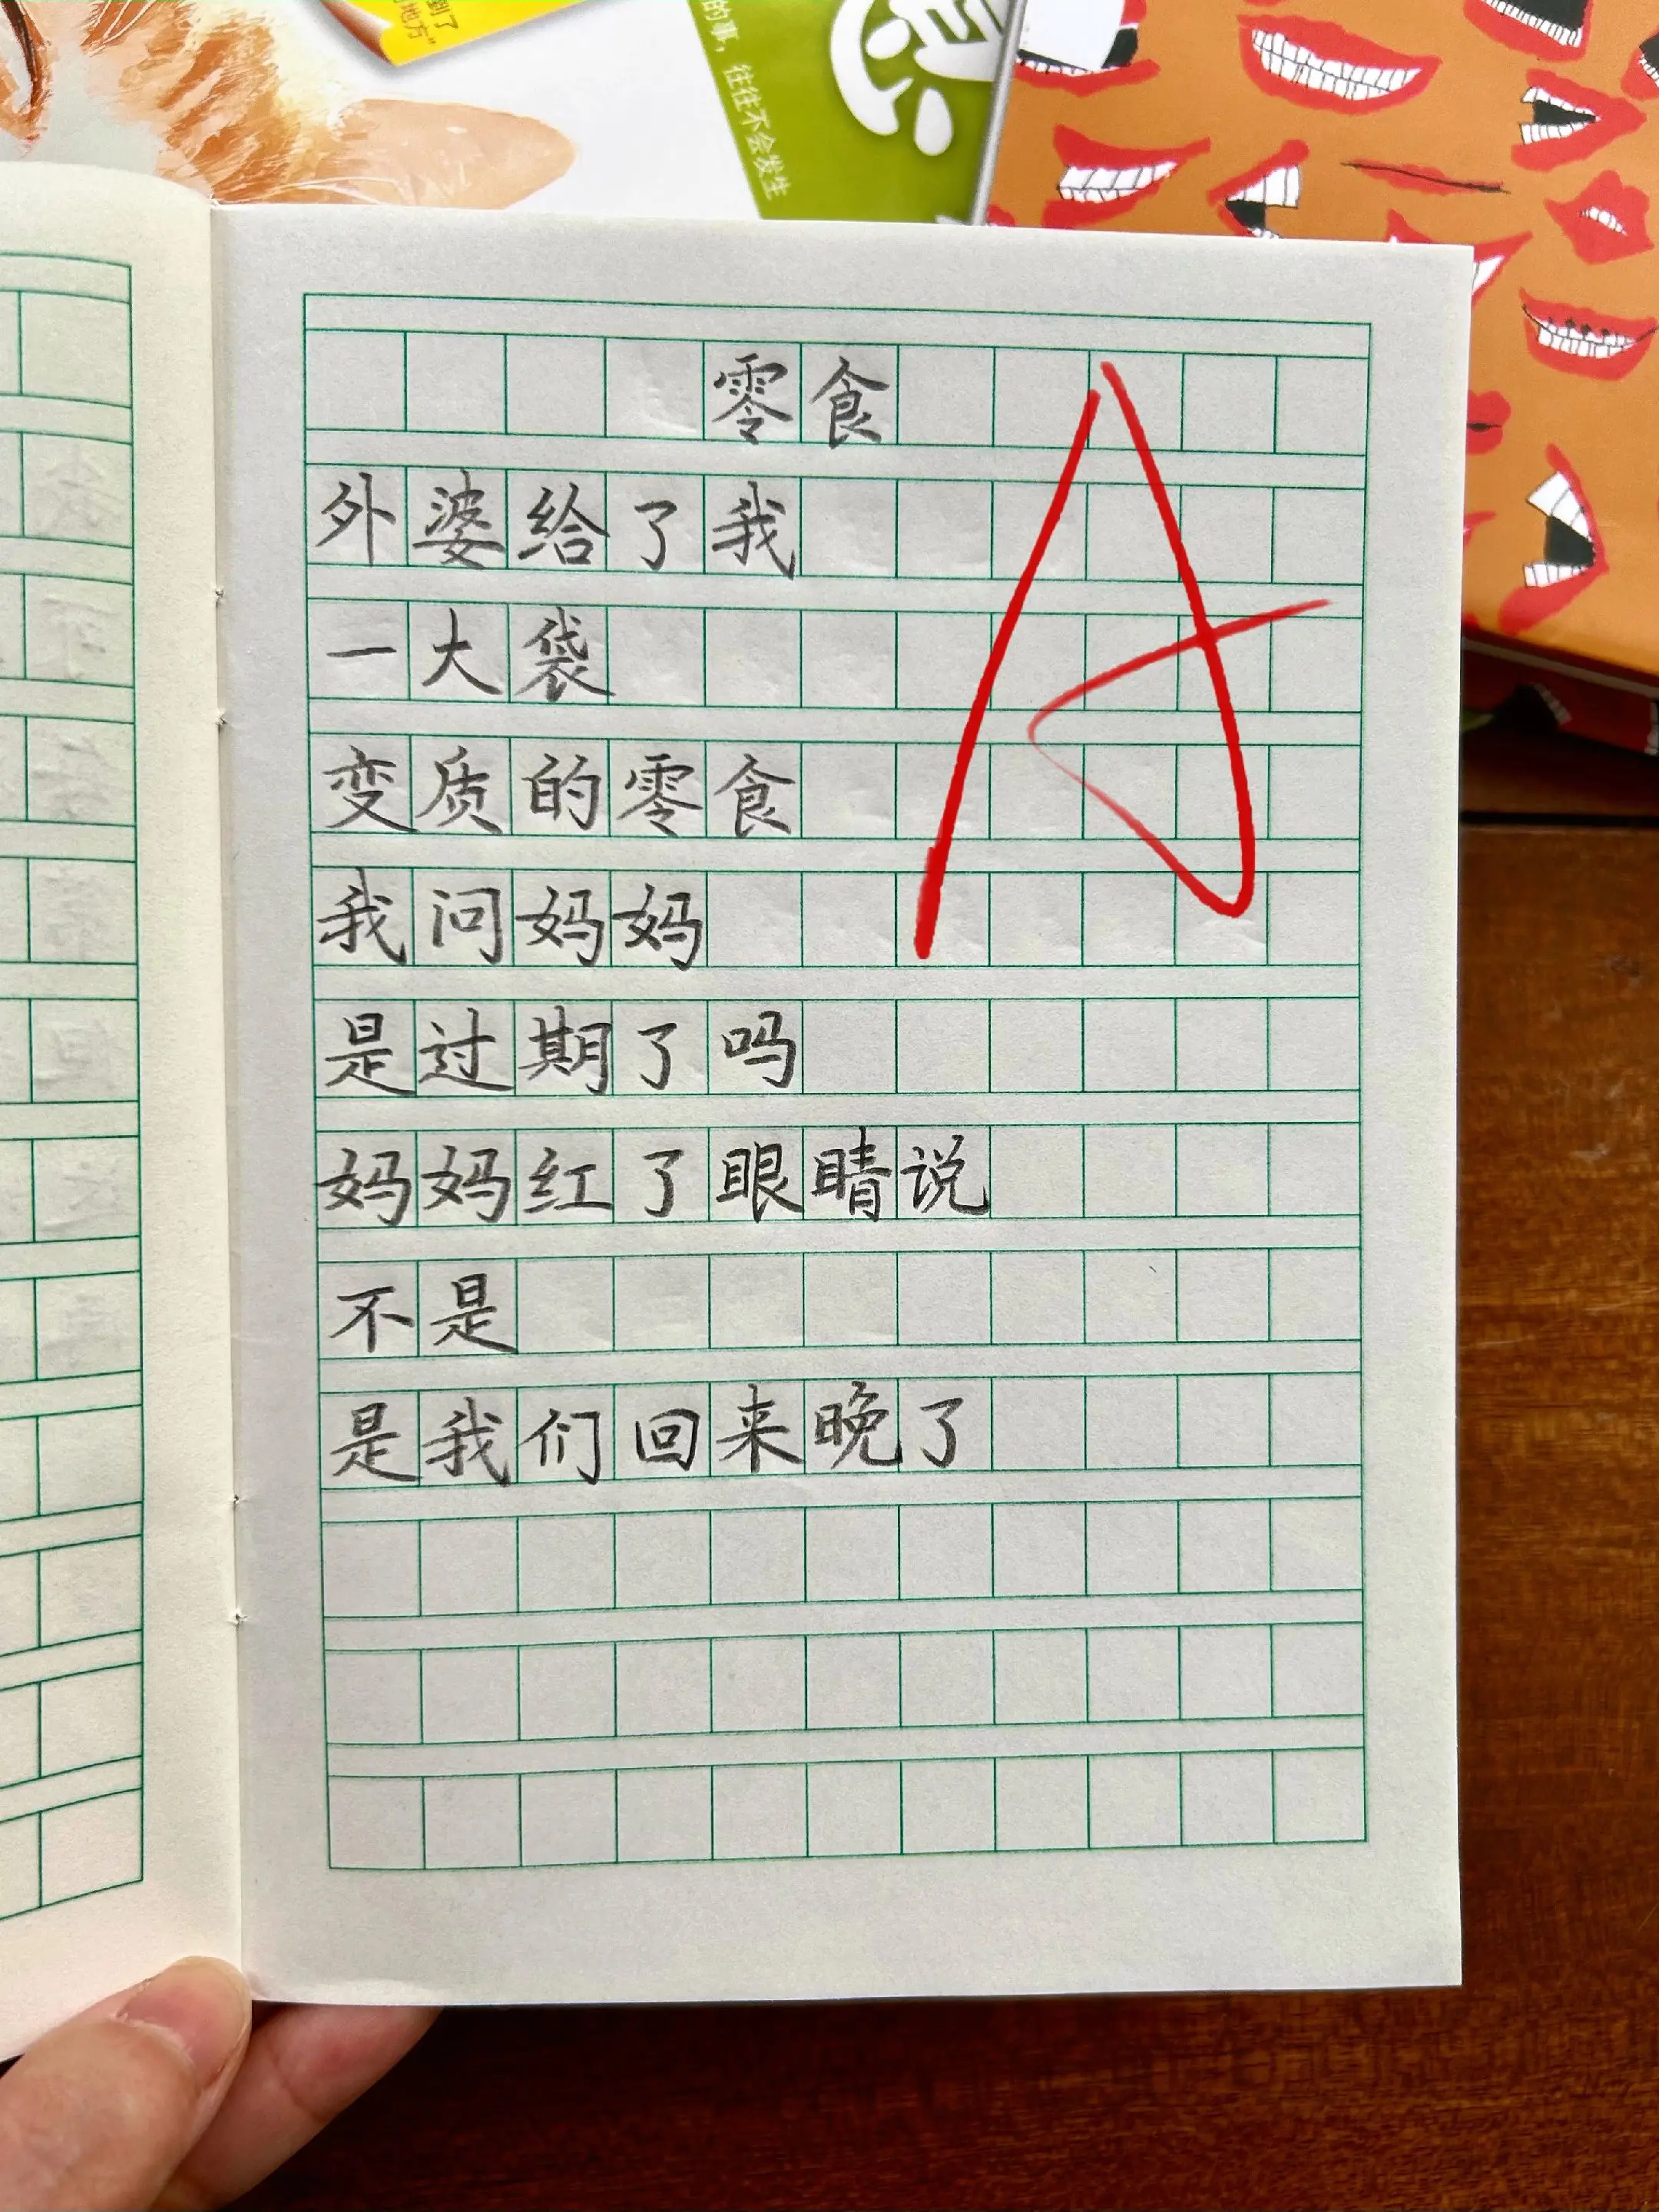 到了
地方”
的事，往往不会发生
零食
外婆给了我
一大袋
变质的零食
我问妈妈
是过期了吗
妈妈红了眼睛说
不是
是我们回来晚了
A